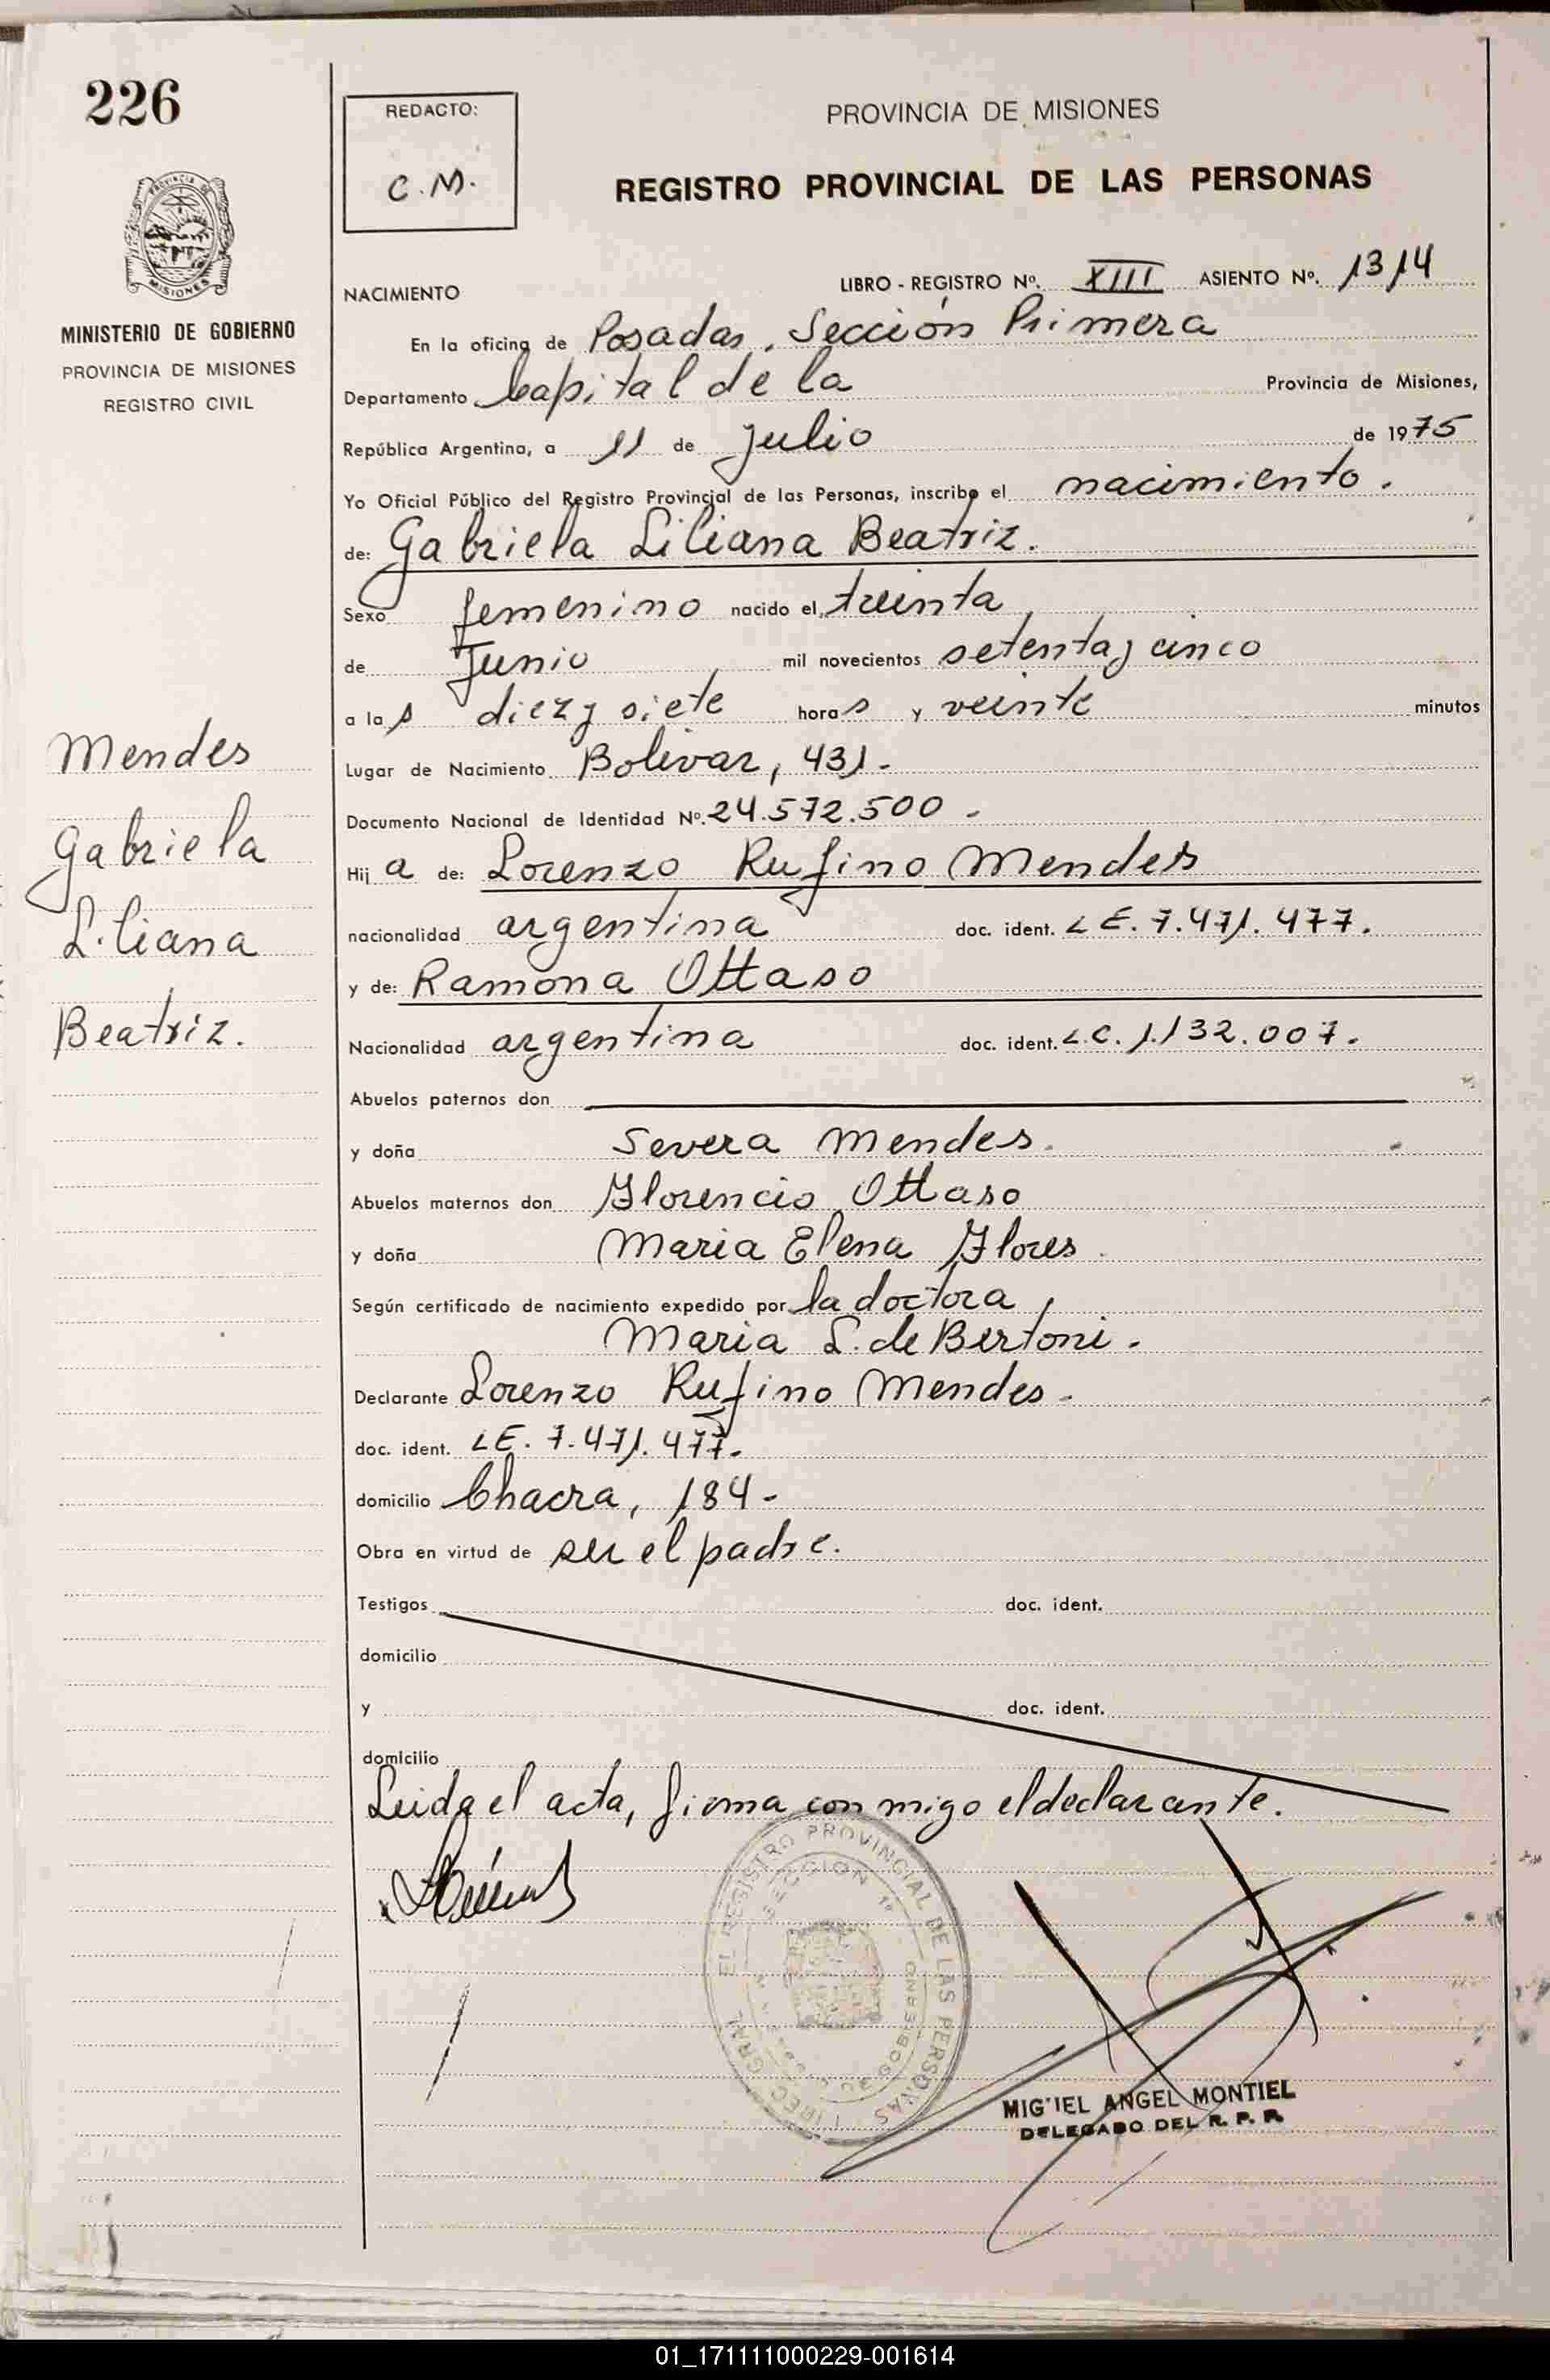 226
REDACTO:
C.M.
PROVINCIA DE MISIONES
REGISTRO PROVINCIAL DE LAS PERSONAS
MISIONES
MINISTERIO DE GOBIERNO
PROVINCIA DE MISIONES
REGISTRO CIVIL
NACIMIENTO
LIBRO - REGISTRO Nº. XIII ASIENTO Nº. 1314
En la oficina de Posadas, Sección Primera
Departamento Capital de la Provincia de Misiones,
República Argentina, a 11 de Julio de 1975
Yo Oficial Público del Registro Provincial de las Personas, inscribo el nacimiento.
de: Gabriela Liliana Beatriz.
Sexo femenino nacido el treinta
de Junio mil novecientos setenta y cinco
a las diez y siete horas y veinte minutos
Lugar de Nacimiento Bolivar, 431.-
Documento Nacional de Identidad Nº. 24.572.500 -
Hija de: Lorenzo Rufino Mendes
nacionalidad argentina doc. ident. LE. 7.471.477.
y de: Ramona Ottaso
Nacionalidad argentina doc. ident. L.C. 1.132.007.
Abuelos paternos don
y doña Severa Mendes.
Abuelos maternos don Florencio Ottaso
y doña Maria Elena Flores.
Según certificado de nacimiento expedido por la doctora,
Maria L. de Bertoni.
Declarante Lorenzo Rufino Mendes.
doc. ident. LE. 7.471.477.
domicilio Chacra, 184-
Obra en virtud de ser el padre.
Testigos doc. ident.
domicilio
y doc. ident.
domicilio
Leida el acta, firma con migo el declarante.
Mendes
Gabriela
Liliana
Beatriz.
REGISTRO PROVINCIAL DE LAS PERSONAS
SECCION 1º
MIGUEL ANGEL MONTIEL
DELEGADO DEL R. P. P.
01_171111000229-001614